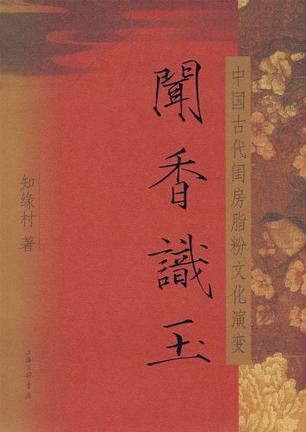 中国古代闺房脂粉文化演变
聞香識玉
知缘村 著
上海三联书店